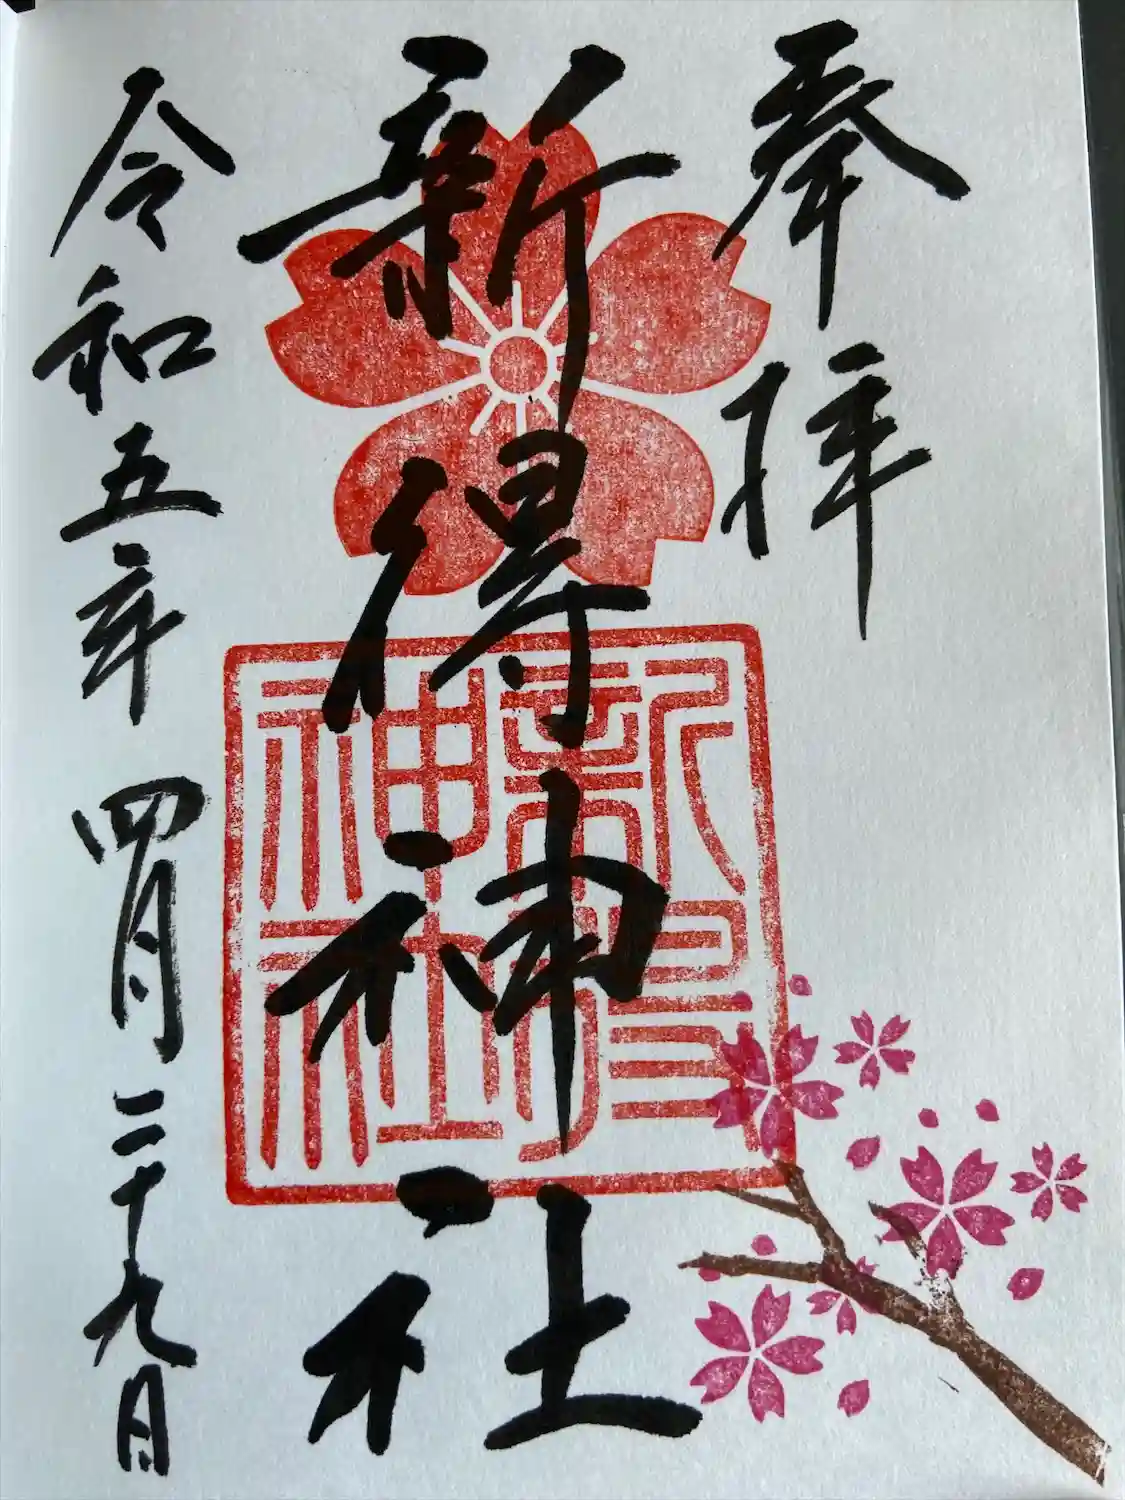 奉拝
新得神社
新得神社
令和五年 四月二十九日